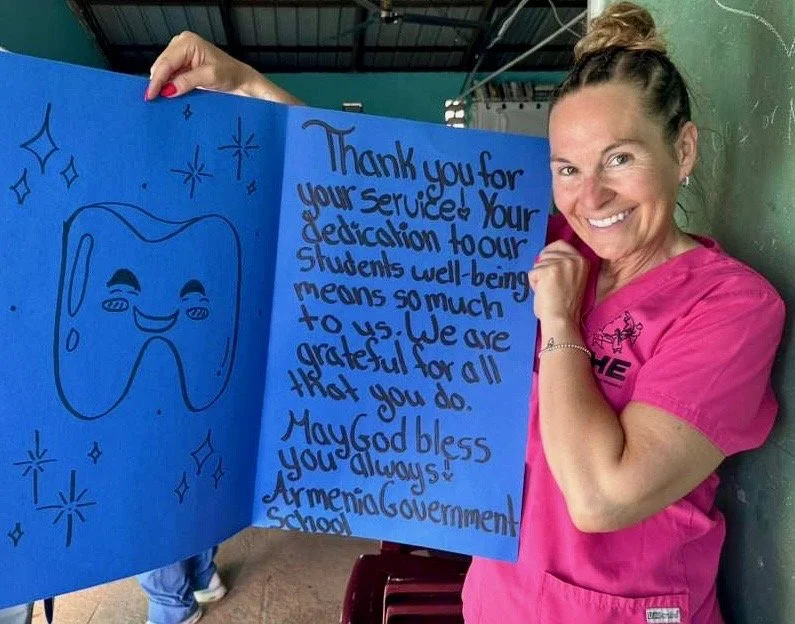 Thank you for
your service! Your
dedication to our
students well-being
means so much
to us. We are
grateful for all
that you do.
May God bless
you always!
Armenia Government
School
HE